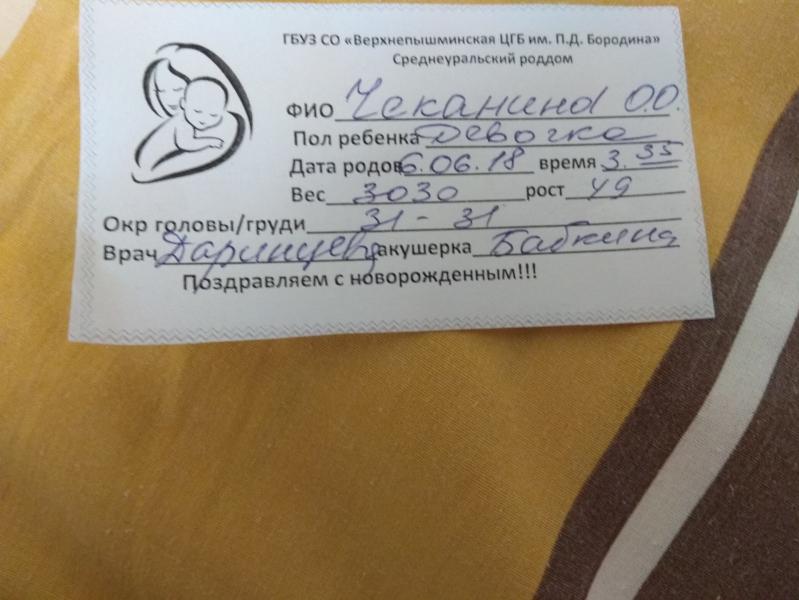 ГБУЗ СО «Верхнепышминская ЦГБ им. П.Д. Бородина»
Среднеуральский роддом
ФИО Чеканина О.О.
Пол ребенка Девочка
Дата родов 6.06.18 время 3.35
Вес 3030 рост 49
Окр головы/груди 31 - 31
Врач Даринцева акушерка Бабкина
Поздравляем с новорожденным!!!